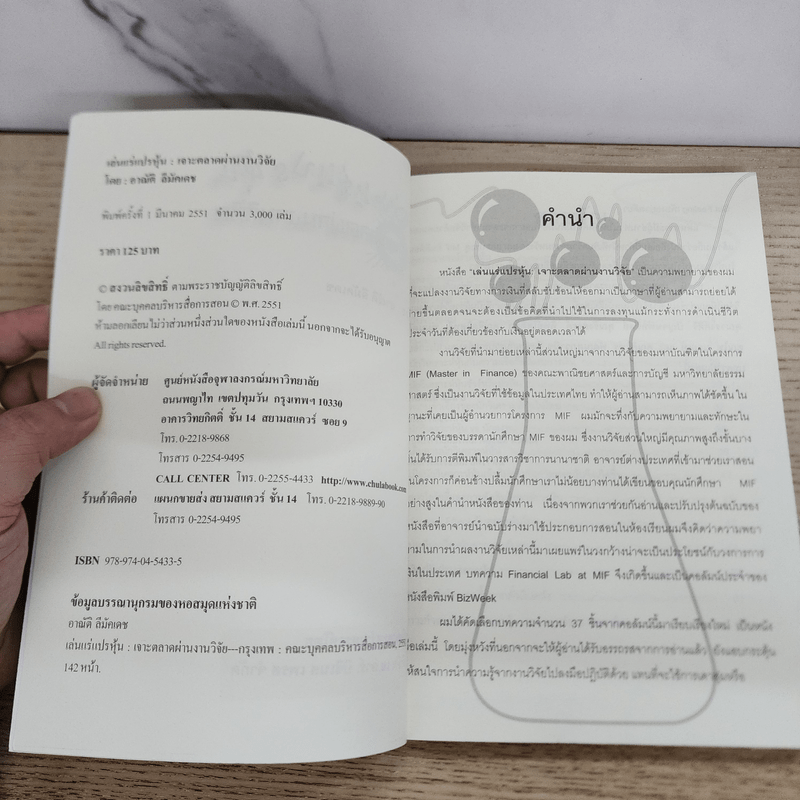 เล่นแร่แปรหุ้น : เจาะตลาดผ่านงานวิจัย
โดย : อาณัติ ลีมัคเดช
พิมพ์ครั้งที่ 1 มีนาคม 2551 จำนวน 3,000 เล่ม
ราคา 125 บาท
© สงวนลิขสิทธิ์ ตามพระราชบัญญัติลิขสิทธิ์
โดย คณะบุคคลบริหารสื่อการสอน © พ.ศ. 2551
ห้ามลอกเลียนไม่ว่าส่วนหนึ่งส่วนใดของหนังสือเล่มนี้ นอกจากจะได้รับอนุญาต
All rights reserved.
ผู้จัดจำหน่าย ศูนย์หนังสือจุฬาลงกรณ์มหาวิทยาลัย
ถนนพญาไท เขตปทุมวัน กรุงเทพฯ 10330
อาคารวิทยกิตติ์ ชั้น 14 สยามสแควร์ ซอย 9
โทร. 0-2218-9868
โทรสาร 0-2254-9495
CALL CENTER โทร. 0-2255-4433 http://www.chulabook.com
ร้านค้าติดต่อ แผนกขายส่ง สยามสแควร์ ชั้น 14 โทร. 0-2218-9889-90
โทรสาร 0-2254-9495
ISBN 978-974-04-5433-5
ข้อมูลบรรณานุกรมของหอสมุดแห่งชาติ
อาณัติ ลีมัคเดช
เล่นแร่แปรหุ้น : เจาะตลาดผ่านงานวิจัย---กรุงเทพ : คณะบุคคลบริหารสื่อการสอน,
142 หน้า.
คำนำ
หนังสือ "เล่นแร่แปรหุ้น เจาะตลาดผ่านงานวิจัย" เป็นความพยายามของผม
ที่จะแปลงงานวิจัยทางการเงินที่สลับซับซ้อนให้ออกมาเป็นภาษาที่ผู้อ่านสามารถย่อยได้
ง่ายขึ้นตลอดจนจะต้องเป็นข้อคิดที่นำไปใช้ในการลงทุนแม้กระทั่งการดำเนินชีวิต
ประจำวันที่ต้องเกี่ยวข้องกับเงินอยู่ตลอดเวลาได้
งานวิจัยที่นำมาย่อยเหล่านี้ส่วนใหญ่มาจากงานวิจัยของมหาบัณฑิตในโครงการ
MIF (Master in Finance) ของคณะพาณิชยศาสตร์และการบัญชี มหาวิทยาลัยธรรม
ศาสตร์ ซึ่งเป็นงานวิจัยที่ใช้ข้อมูลในประเทศไทย ทำให้ผู้อ่านสามารถเห็นภาพได้ชัดขึ้น ใน
ฐานะที่เคยเป็นผู้อำนวยการโครงการ MIF ผมมักจะทึ่งกับความพยายามและทักษะใน
การทำวิจัยของบรรดานักศึกษา MIF ของผม ซึ่งงานวิจัยส่วนใหญ่มีคุณภาพสูงถึงขั้นบาง
ชิ้นได้รับการตีพิมพ์ในวารสารวิชาการนานาชาติ อาจารย์ต่างประเทศที่เข้ามาช่วยเราสอน
ในโครงการก็ค่อนข้างปลื้มนักศึกษาเราไม่น้อยบางท่านได้เขียนขอบคุณนักศึกษา MIF
อย่างสูงในคำนำหนังสือของท่าน เนื่องจากพวกเราช่วยกันอ่านและปรับปรุงต้นฉบับของ
หนังสือที่อาจารย์นำฉบับร่างมาใช้ประกอบการสอนในห้องเรียนผมจึงคิดว่าความพยา
ยามในการนำผลงานวิจัยเหล่านี้มาเผยแพร่ในวงกว้างน่าจะเป็นประโยชน์กับวงการการ
เงินในประเทศ บทความ Financial Lab at MIF จึงเกิดขึ้นและเป็นคอลัมน์ประจำของ
หนังสือพิมพ์ BizWeek
ผมได้คัดเลือกบทความจำนวน 37 ชิ้นจากคอลัมน์นี้มาเรียบเรียงใหม่ เป็นหนัง
สือเล่มนี้ โดยมุ่งหวังที่นอกจากจะให้ผู้อ่านได้รับอรรถรสจากการอ่านแล้ว ยังแอบกระตุ้น
ให้สนใจการนำความรู้จากงานวิจัยไปลงมือปฏิบัติด้วย แทนที่จะใช้การเดาสุ่มหรือ